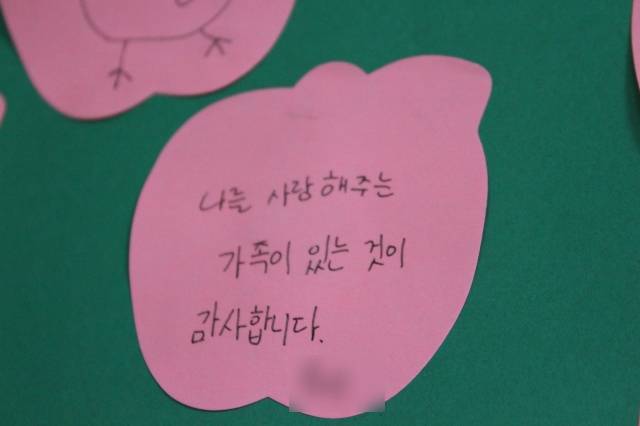 나를 사랑해주는
가족이 있는 것이
감사합니다.